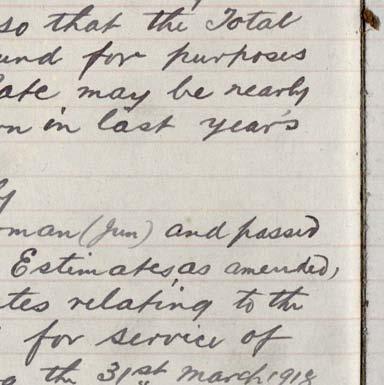 so that the Total
und for purposes
ate may be nearly
on in last year's
y
oman (Jun) and passed
Estimates, as amended,
tes relating to the
for service of
g the 31st March 1918